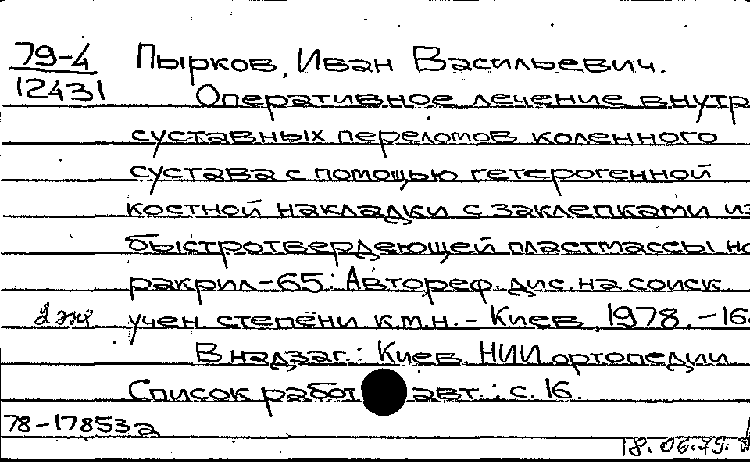 79-4 Пырков, Иван Васильевич.
12431
Оперативное лечение внутр
суставных переломов коленного
сустава с помощью гетерогенной
костной накладки с заклепками из
быстротвердеющей пластмассы но
ракрил-65: Автореф. дис. на соиск.
2 экз учен. степени к.м.н. - Киев, 1978. - 16
В надзаг.: Киев. НИИ ортопедии
Список работ авт.: с. 16.
78-17853а
18.06.79.